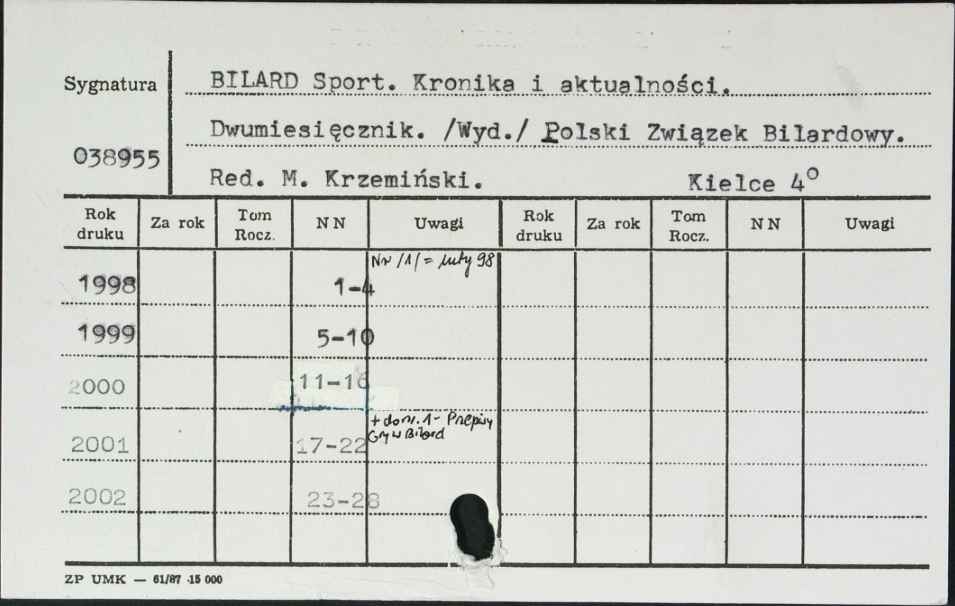 Sygnatura
BILARD Sport. Kronika i aktualności.
Dwumiesięcznik. /Wyd./ Polski Związek Bilardowy.
038955
Red. M. Krzemiński. Kielce 4°
Rok druku Za rok Tom Rocz. NN Uwagi Rok druku Za rok Tom Rocz. NN Uwagi
Nr /1/ = luty 98
1998 1-4
1999 5-10
2000 11-16
+ do nr. 1 - Przepisy
Gry w Bilard
2001 17-22
2002 23-28
ZP UMK — 61/87 15 000